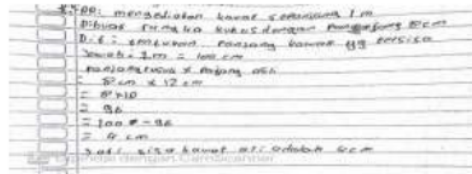 mengediakan kawat sepanjang 1 m
Dibuat rangka kubus dengan Panjang 8cm
Dit: tentukan panjang kawat yg tersisa
Jawab: 1m = 100 cm
panjang rusuk x
= 8cm x 12 cm
= 8x10
= 96
= 100 - 96
= 4 cm
Jadi sisa kawat adalah 4cm
dengan CamScanner